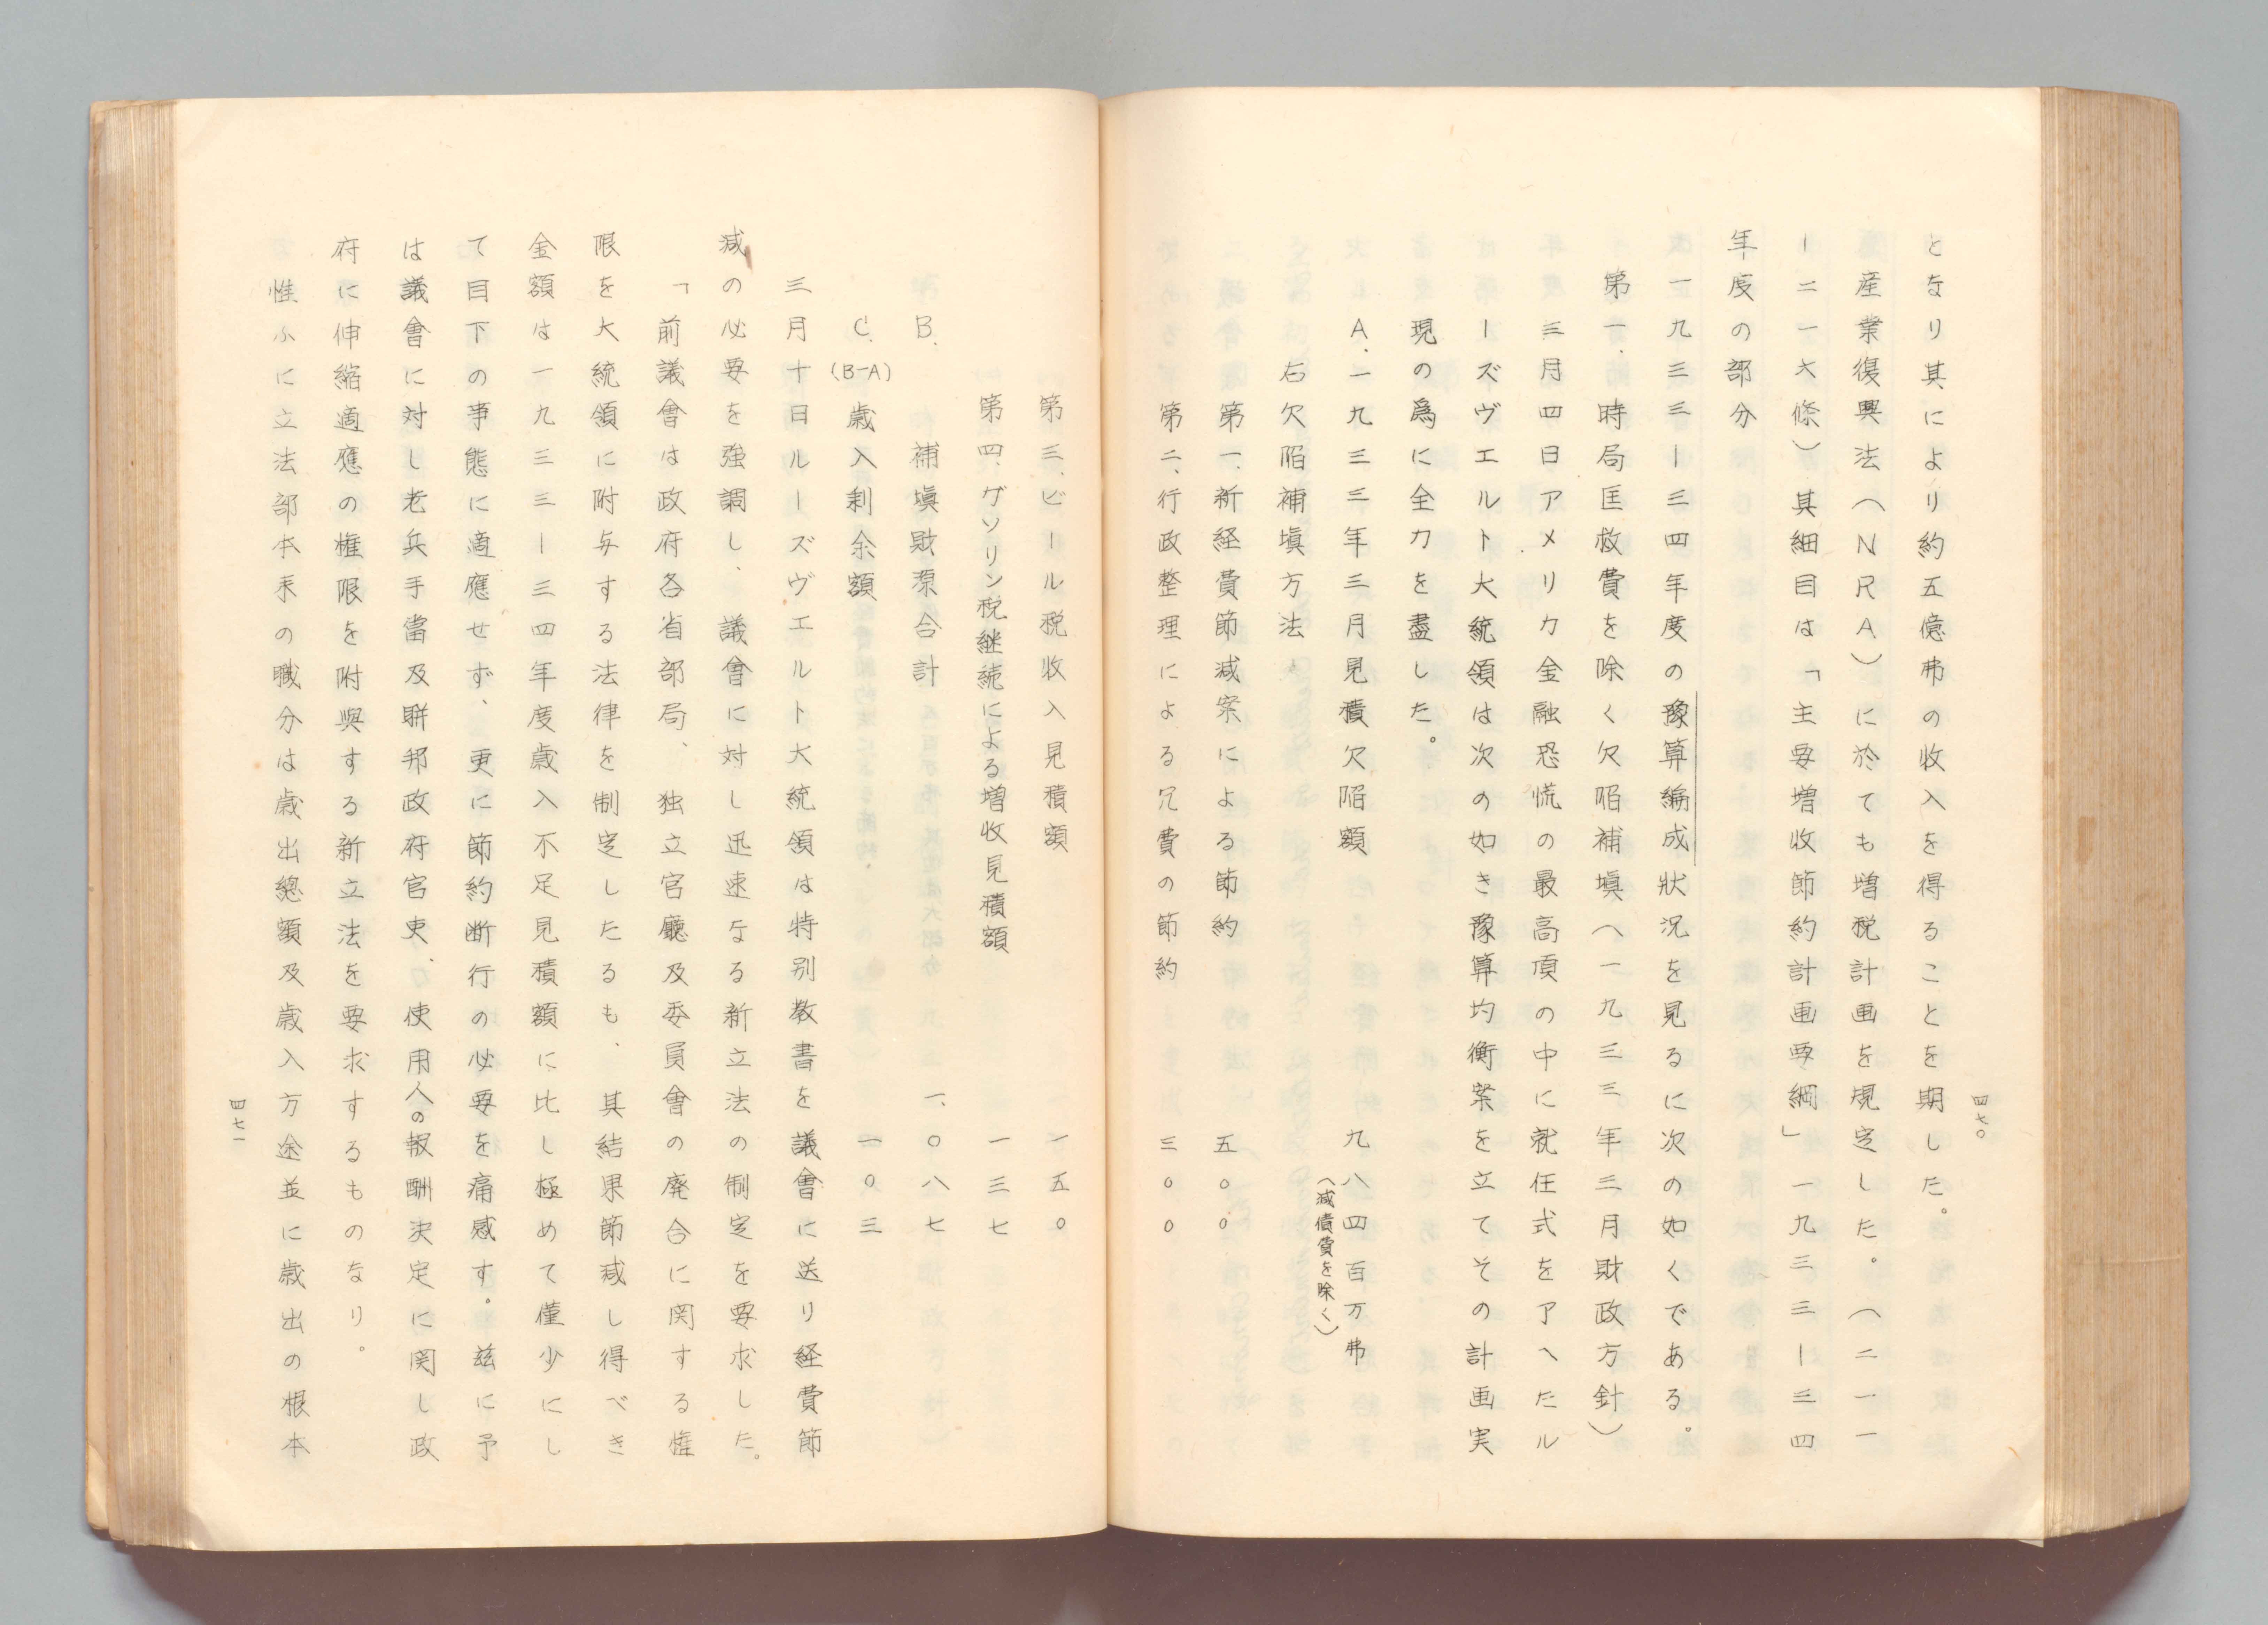 四七〇
となり其により約五億弗の收入を得ることを期した。
産業復興法(NRA)に於ても増税計画を規定した。(二一一
ー二一六條)其細目は「主要増收節約計画要綱」一九三三ー三四
年度の部分
一九三三ー三四年度の豫算編成狀況を見るに次の如くである。
第一.時局匡救費を除く欠陥補塡(一九三三年三月財政方針)
三月四日アメリカ金融恐慌の最高頂の中に就任式をアヘたル
ーズヴエルト大統領は次の如き豫算均衡案を立てその計画実
現の爲に全力を盡した。
A.一九三三年三月見積欠陥額 九八四百万弗
(減債費を除く)
右欠陥補塡方法
第一、新経費節減案による節約 五〇〇
第二、行政整理による冗費の節約 三〇〇
第三、ビール税收入見積額 一五〇
第四、ゲソリン税継続による増收見積額 一三七
B. 補塡財源合計 一、〇八七
C.(B-A)歳入剰余額 一〇三
三月十日ルーズヴエルト大統領は特別教書を議會に送り経費節
減の必要を強調し、議會に対し迅速なる新立法の制定を要求した。
「前議會は政府各省部局、独立官廳及委員會の廃合に関する権
限を大統領に附与する法律を制定したるも、其結果節減し得べき
金額は一九三三ー三四年度歳入不足見積額に比し極めて僅少にし
て目下の事態に適應せず、更に節約断行の必要を痛感す。茲に予
は議會に対し老兵手當及聯邦政府官吏、使用人の報酬決定に関し政
府に伸縮適應の権限を附與する新立法を要求するものなり。
惟ふに立法部本来の職分は歳出總額及歳入方途並に歳出の根本
四七一